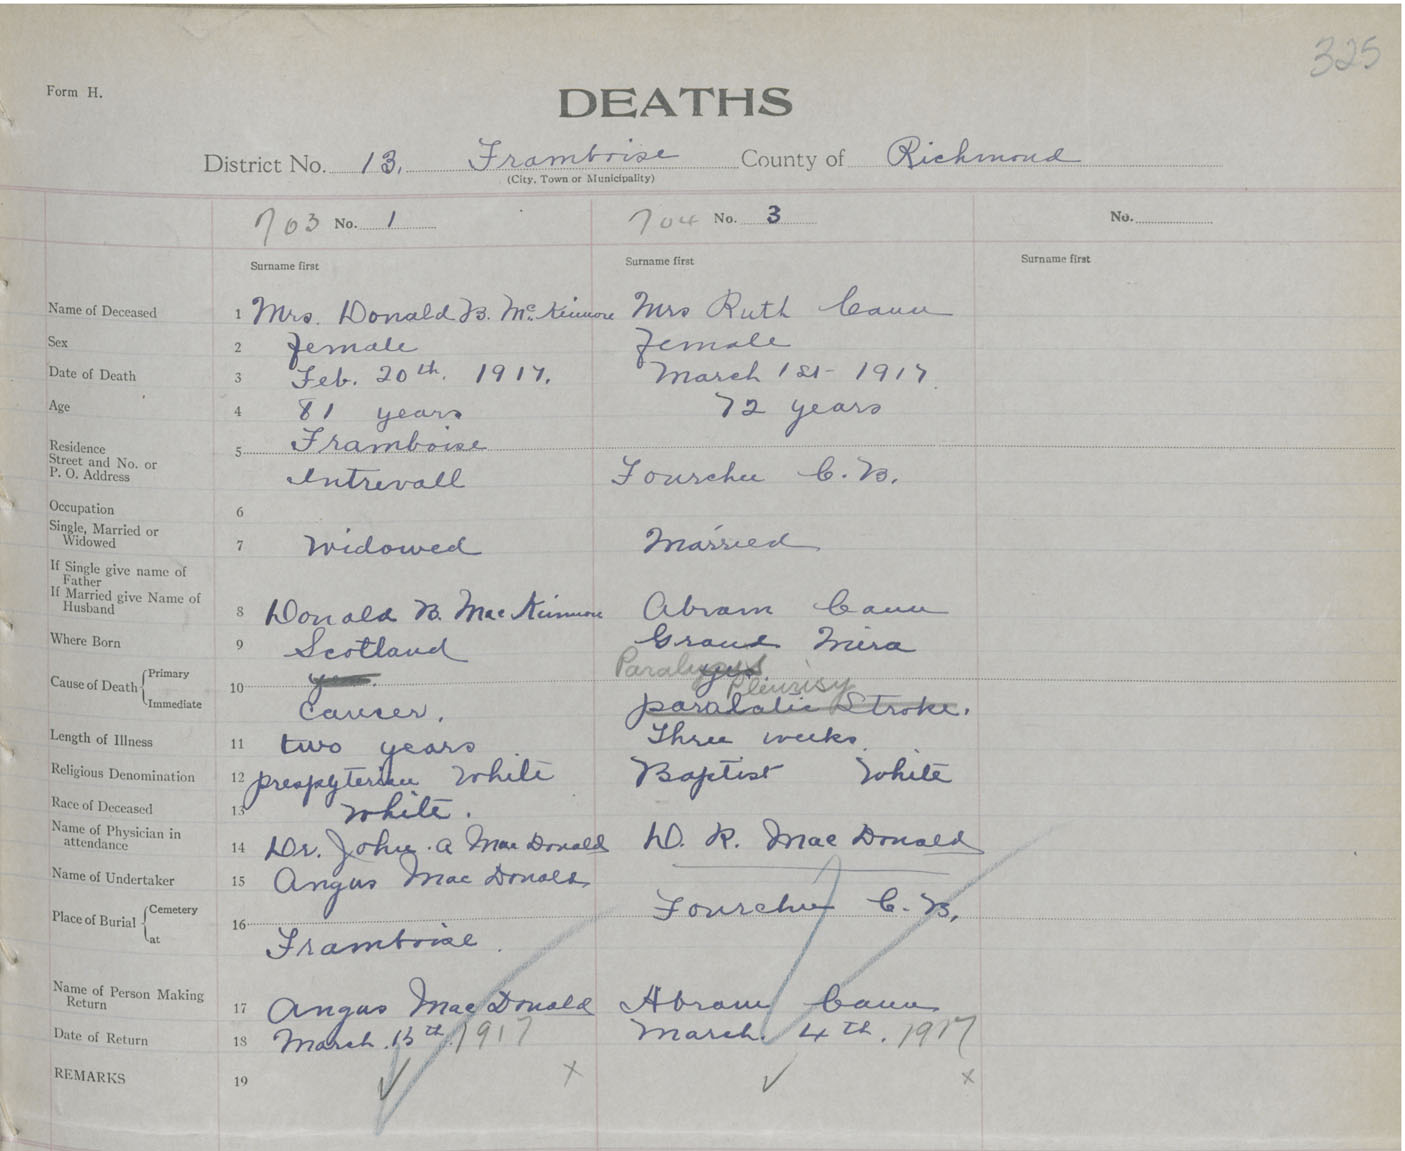 325
Form H.
DEATHS
District No. 13. Framboise County of Richmond
(City, Town or Municipality)
703 No. 1 704 No. 3 No.
Surname first Surname first Surname first
Name of Deceased 1 Mrs. Donald B. McKinnon Mrs Ruth Cann
Sex 2 female female
Date of Death 3 Feb. 20th. 1917. March 1st 1917.
Age 4 81 years 72 years
Residence 5 Framboise
Street and No. or
P. O. Address Intrevall Fourchu C. B.
Occupation 6
Single, Married or
Widowed 7 Widowed Married
If Single give name of
Father
If Married give Name of
Husband 8 Donald B. MacKinnon Abram Cann
Where Born 9 Scotland Grand Mira
Cause of Death Primary 10 yes. Paralysis yes Pleurisy
Immediate Cancer. paralatic Stroke.
Length of Illness 11 two years Three weeks.
Religious Denomination 12 presbyterian White Baptist White
Race of Deceased 13 White.
Name of Physician in
attendance 14 Dr. John. A MacDonald D. R. MacDonald
Name of Undertaker 15 Angus MacDonald
Place of Burial Cemetery 16 Fourchu C. B.
at Framboise.
Name of Person Making
Return 17 Angus MacDonald Abram Cann
Date of Return 18 March. 13th. 1917 March. 4th. 1917
REMARKS 19 ✓ x ✓ x